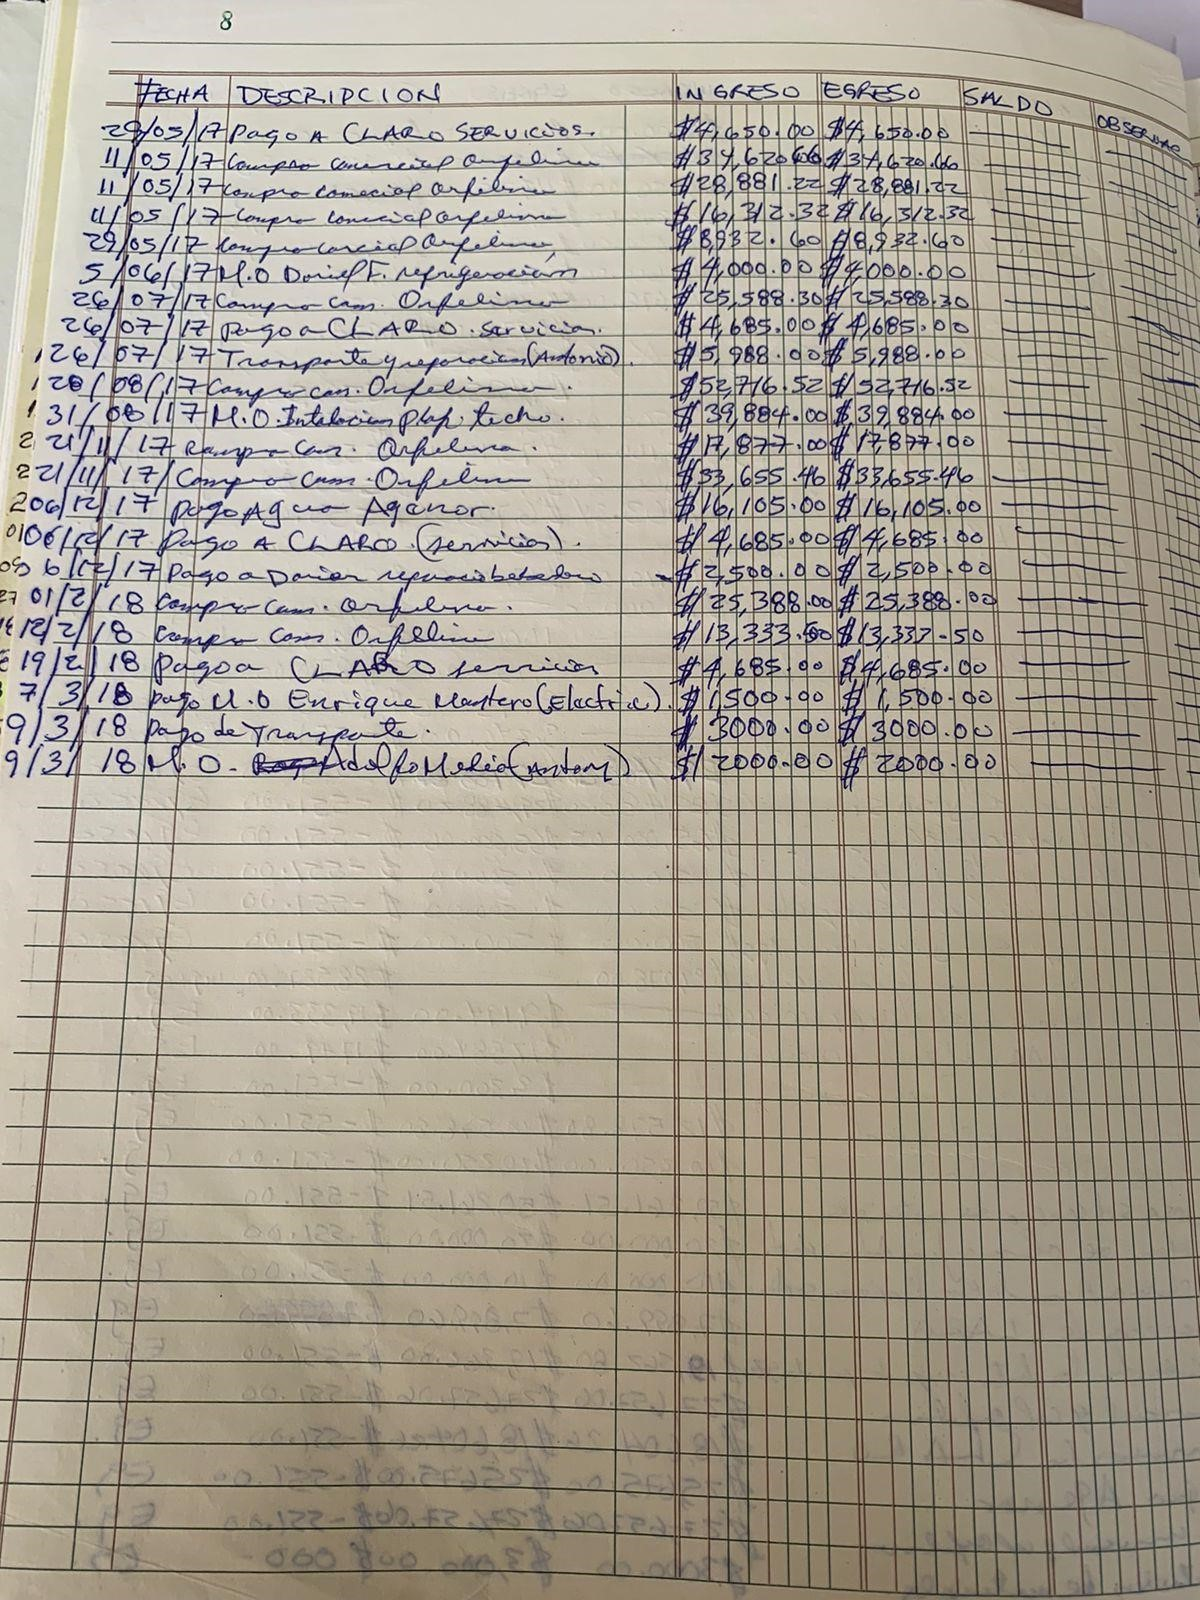 8
FECHA DESCRIPCION INGRESO EGRESO SALDO OBSERVAC
29/05/17 Pago A CLARO SERVICIOS. $4,650.00 $4,650.00
11/05/17 Compra Comercial Orfelina $34,620.66 $34,620.66
11/05/17 Compra Comecial Orfelina $28,881.22 $28,881.22
11/05/17 Compra Comecial Orfelina $16,312.32 $16,312.32
29/05/17 Compra Comercial Orfelina, $8,932.60 $8,932.60
5/06/17 M.O Daniel F. refrigeracion $4,000.00 $4,000.00
26/07/17 Compra Com. Orfelina $25,588.30 $25,588.30
26/07/17 Pago a CLARO. Servicios. $4,685.00 $4,685.00
26/07/17 Transporte y reparacion (Antonio). $5,988.00 $5,988.00
28/08/17 Compra Com. Orfelina. $52,716.52 $52,716.52
31/08/17 M.O. Intalacion Plaf. techo. $39,884.00 $39,884.00
21/11/17 Compra Com. Orfelina. $17,877.00 $17,877.00
21/11/17 Compra Com. Orfelina $33,655.46 $33,655.46
06/12/17 Pago Agua Aganor. $16,105.00 $16,105.00
06/12/17 Pago A CLARO. (servicios). $4,685.00 $4,685.00
6/12/17 Pago a reparacio bebedero $2,500.00 $2,500.00
01/2/18 Compra Com. Orfelina. $25,388.00 $25,388.00
12/2/18 Compra Com. Orfelina $13,333.50 $13,337.50
19/2/18 Pago a CLARO servicios $4,685.00 $4,685.00
7/3/18 Pago M.O Enrique (Electric). $1,500.00 $1,500.00
9/3/18 Pago de Transporte. $3000.00 $3000.00
9/3/18 M.O. Adolfo $2000.00 $2000.00